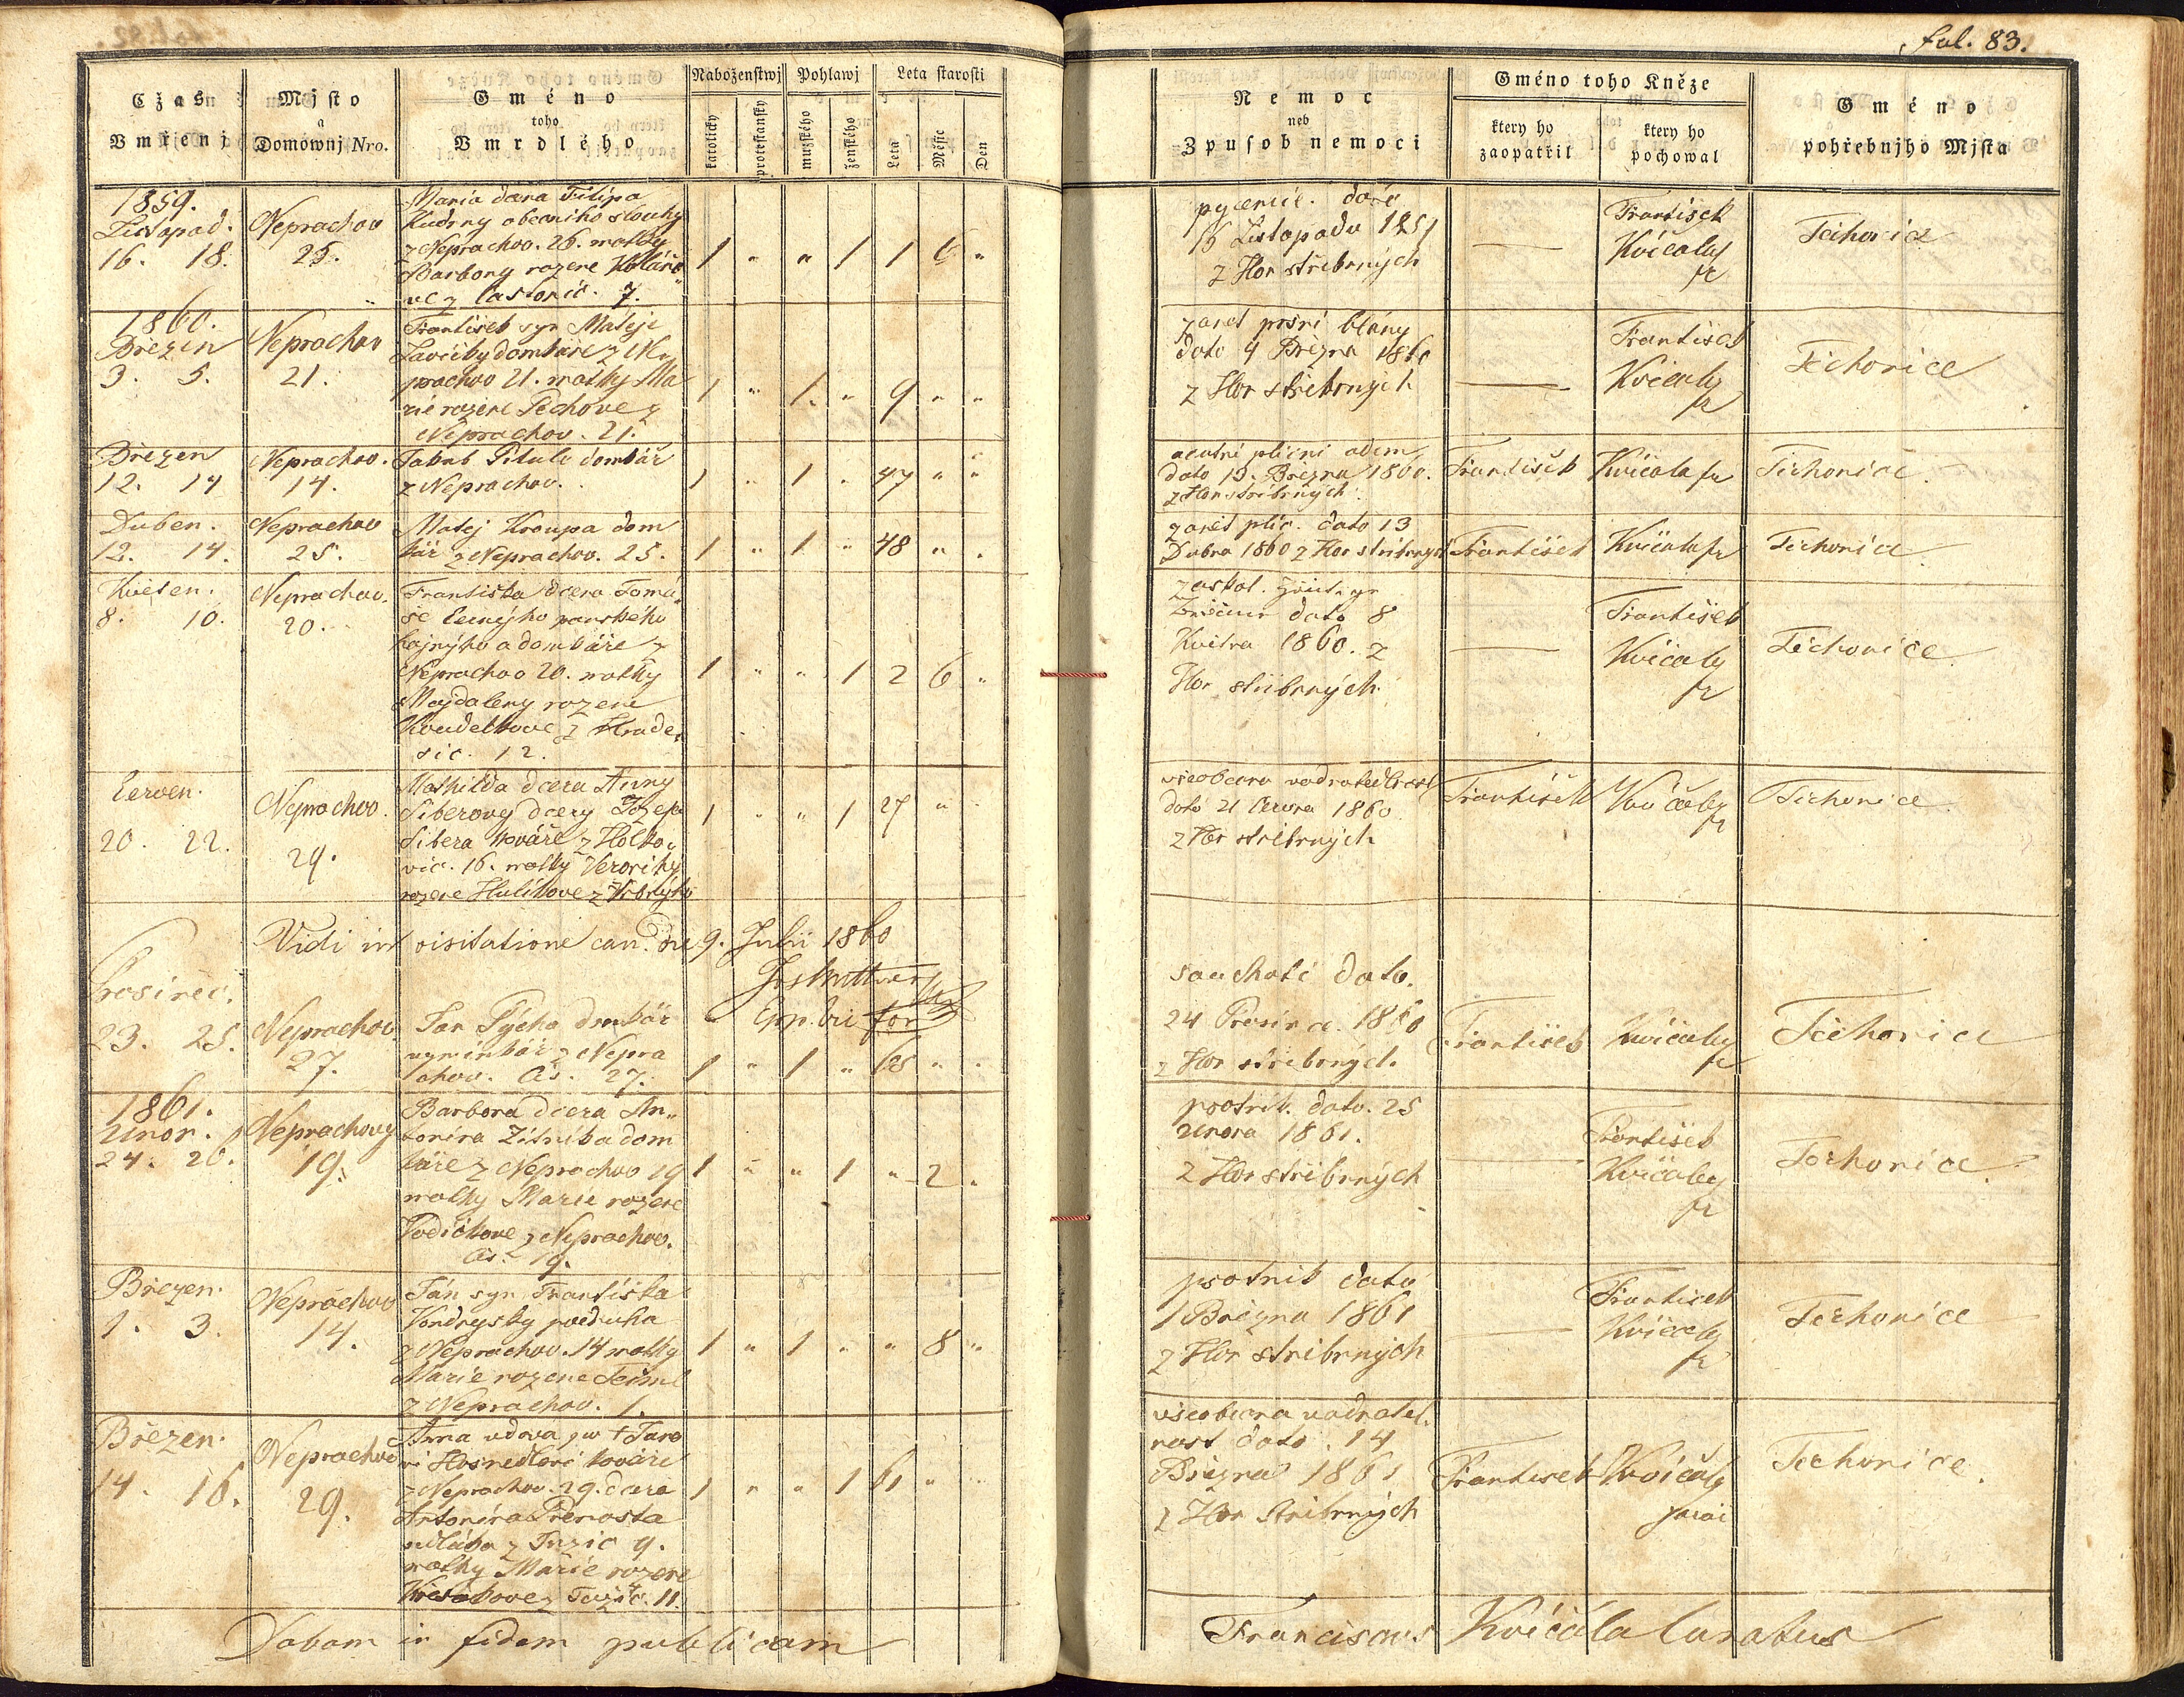 fol. 83.
Cžas
Vmřenj
Mjsto
a
Domownj Nro.
Gméno
toho
Vmrdlého
Náboženstwj
katolický
protestanský
Pohlawj
mužského
ženského
Leta starosti
Leta
Měsíc
Den
Nemoc
neb
Zpusob nemoci
Gméno toho Kněze
ktery ho
zaopatřil
ktery ho
pochowal
Gméno
pohřebnjho Mjsta
1859.
Listopad.
16. 18.
Neprachov
25.
Maria dcera Filipa
Kudrny obecniho slouhy
z Neprachov. 26. matky
Barbory rozene Kolářo
ve z Častonic. 7.
1 " " 1 1 6 "
16 Listopadu 1859
z Hor stříbrných
František
Kvičaly
fr
Těchonice
1860.
Březen
3. 5.
Neprachov
21.
František syn Matěje
domkáře z Ne
prachov 21. matky Ma
rie rozene Pechove z
Neprachov. 21.
1 " 1. " 9 " "
zanět prsní blány
dato 4 Března 1860
z Hor stříbrných
František
Kvičaly
fr
Těchonice
Březen
12. 14
Neprachov.
14.
Jakub domkář
z Neprachov.
1 1 . 47 " "
acutní plicní odem
dato 13. Března 1860.
z Hor stříbrných
František
Kvičala fr
Těchonice.
Duben.
12. 14.
Neprachov
25.
Matěj Kroupa dom
kář z Neprachov. 25.
1 " 1 " 48 " .
zanět plic. dato 13
Dubna 1860 z Hor stribrnych
František
Kvičala fr
Těchonice
Květen.
8. 10.
Neprachov.
20.
Františka dcera Tomá
še Černýho panského
hajnýho a domkáře z
Neprachov 20. matky
Majdaleny rozene
Koudelkove z Hrade
šic. 12.
1 " " 1 2 6 "
dato 8
Května 1860. z
Hor stribrných.
František
Kvičaly
fr
Těchonice
Červen.
20. 22.
Neprachov.
29.
Mathilda dcera Anny
Siberovy dcery Josefa
Sibera kováře z Holko
vic. 16. matky Veroniky
rozene Hulikove z
1 " " 1 27 "
všeobecna vodnatedlnost
dato 21 Června 1860
z Hor stribrných
František
Kvičaly
fr
Těchonice.
Vidi in visitatione can. die 9. Julii 1860
Prosinec.
23. 25.
Neprachov.
27.
Jan Pýcha domkář
vyminkář z Nepra
chov. čís. 27.
1 " 1 " 68 " .
souchotě dato.
24 Prosince. 1860
z Hor stribrných.
František
Kvičaly
fr
Těchonice
1861.
Únor.
24. 26.
Neprachovy
19.
Barbora dcera An
tonína Žitníka dom
káře z Neprachov 19
matky Marie rozene
Vodičkove z Neprachov.
čís. 19.
1 " " 1 " 2 .
psotník. dato. 25
Února 1861.
z Hor stříbrných
František
Kvičaly
fr
Těchonice
Březen.
1. 3.
Neprachov
14.
Ján syn Františka
Vondrysky podruha
z Neprachov. 14 matky
Marie rozene
z Neprachov. 1.
1 " 1 " " 8 "
psotnik dato
1 Března 1861
z Hor stribrných
František
Kvičaly
fr
Těchonice
Březen.
14. 16.
Neprachov
29.
Anna vdova po † Jano
vi kováři
z Neprachov. 29. dcera
Antonína Přenosta
sedláka z Tužic 9.
matky Marie rozene
z Tužic. 11.
1 " " 1 61 "
všeobecna vodnatel
nost dato. 14
Března 1861
z Hor Stribrných
František
Kvičaly
farář
Těchonice.
Dabam in fidem publicam
Franciscus Kvičala Curatus